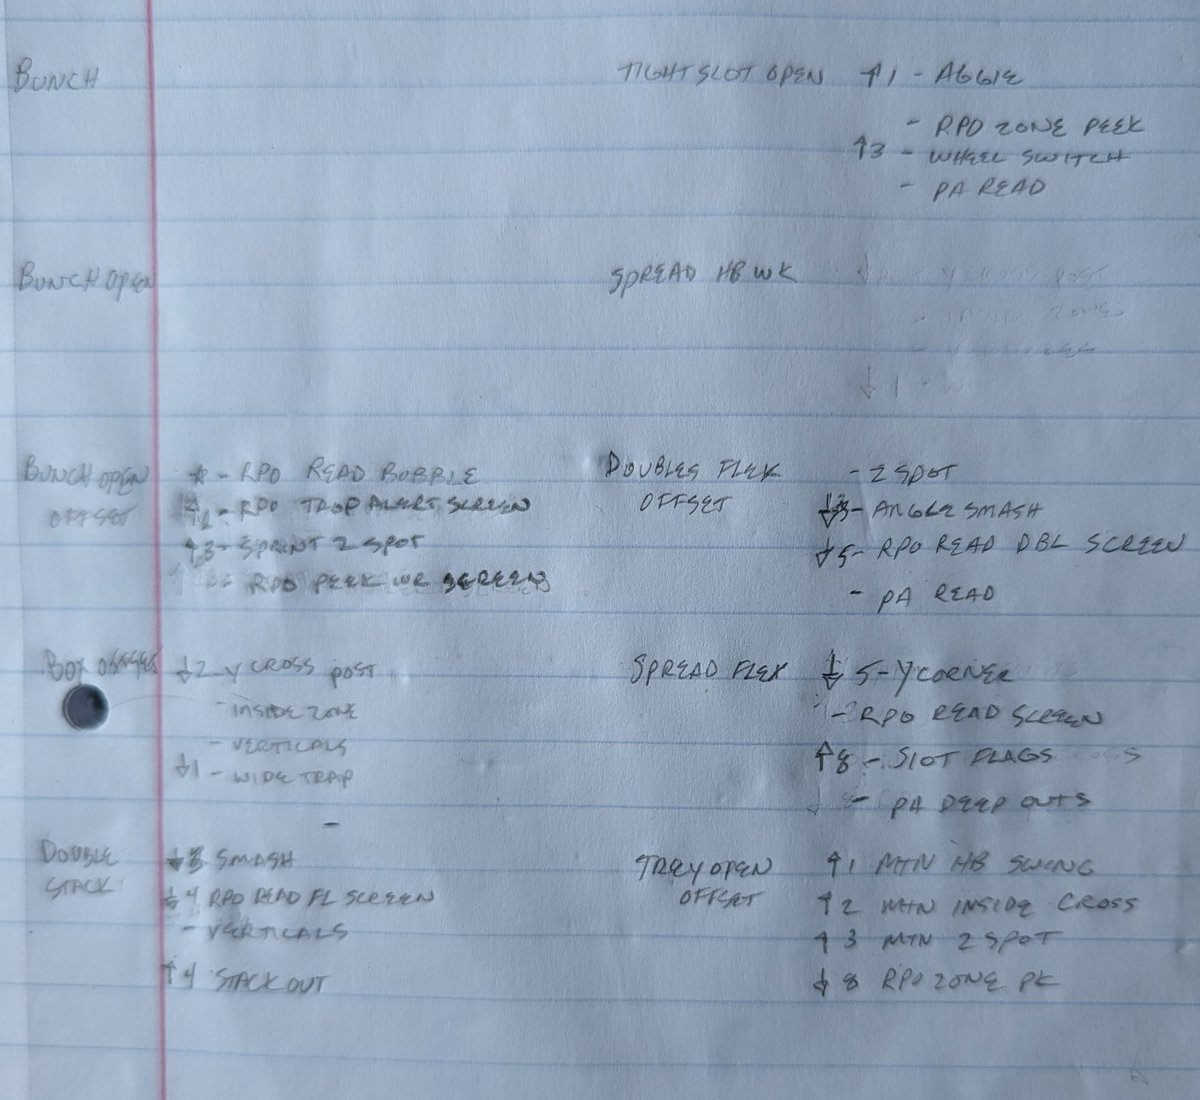 BUNCH
BUNCH OPEN
BUNCH OPEN OFFSET
- RPO READ BUBBLE
- RPO TROP ALERT SCREEN
↑3- SPRINT Z SPOT
RPO PEEK WR SCREEN
BOX OFFSET
↓2-Y CROSS POST
- INSIDE ZONE
- VERTICALS
↓1 - WIDE TRAP
-
DOUBLE STACK
↓3 SMASH
↓4 RPO READ FL SCREEN
- VERTICALS
↑4 STACK OUT
TIGHT SLOT OPEN
↑1 - AGGIE
- RPO ZONE PEEK
↑3 - WHEEL SWITCH
- PA READ
SPREAD HB WK
POST
ZONE
↓1 -
DOUBLES FLEX OFFSET
- Z SPOT
↓3- ANGLE SMASH
↓5- RPO READ DBL SCREEN
- PA READ
SPREAD FLEX
↓5-Y CORNER
-RPO READ SCREEN
↑8- SLOT FLAGS
- PA DEEP OUTS
TREY OPEN OFFSET
↑1 MTN HB SWING
↑2 MTN INSIDE CROSS
↑3 MTN Z SPOT
↓8 RPO ZONE PK